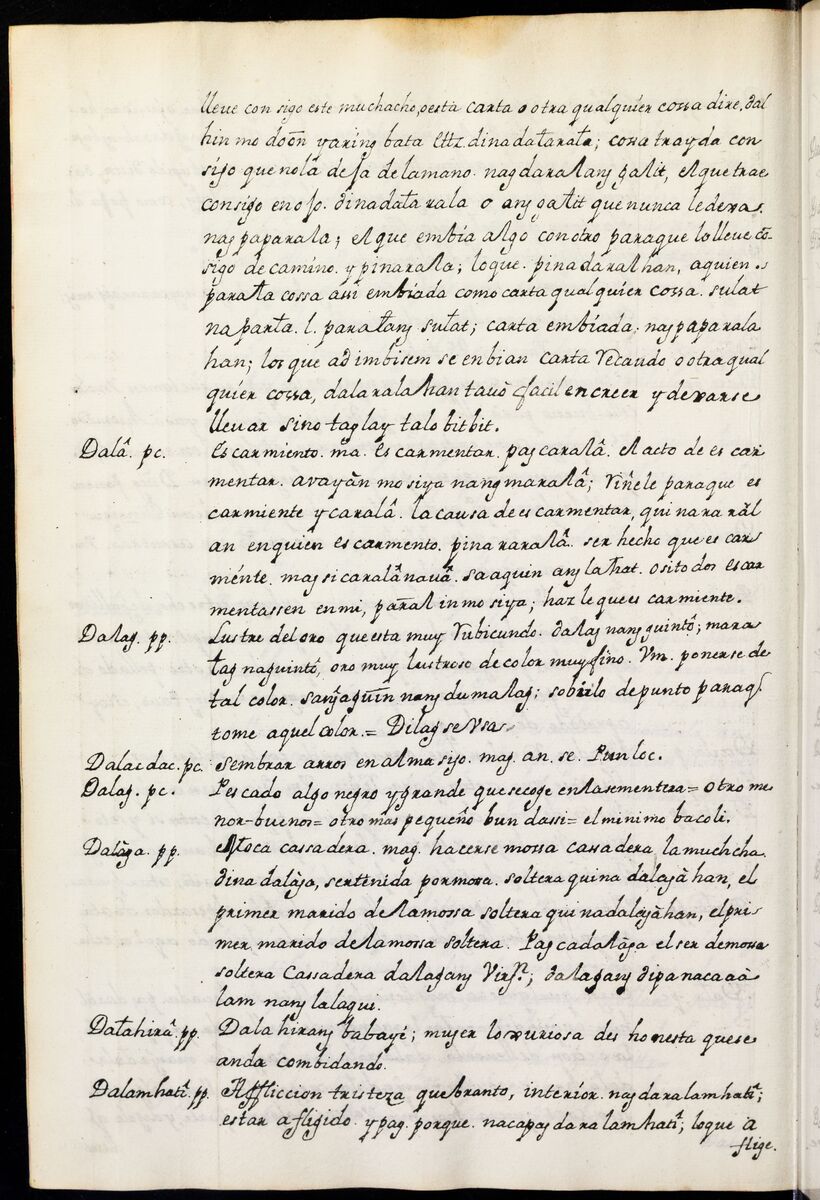 lleve con sigo este muchacho, oesta carta o otra qualquier cossa dire, dal
hin mo doõn yaring bata ettz. dinadatarata; cossa trayda con
sigo que nola deja de la mano. nagdaralang galit, elque trae
consigo enojo. dinadatarala o ang galit que nunca ledexa.
nag paparala; el que embia algo con otro paraque lo lleve cõ
sigo de camino. y pinarala; loque. pinadaralhan, aquien.
parala cossa assi embiada como carta qualquier cossa. sulat
na parla. l. paralang sulat; carta embiada. nag paparala
han; los que ad imbisem se enbian carta recaudo o otra qual
quier cossa, dalaralahan tauõ facil en creer y dexarse
llevar sino taglay talo bitbit.
Dalâ. pc. Escarmiento. ma. escarmentar. pag caralâ. el acto de escar
mentar. avayàn mo siya nang maralâ; riñele paraque es
carmiente y caralâ. la causa de escarmentar, quinararàl
an enquien escarmento. pinararalâ. ser hecho que escar
miénte. mag si caralâ navâ. sa aquin ang lahat. o si todos escar
mentassen en mi, parâl in mo siya; haz le que escarmiente.
Dalag. pp. Lustre del oro que esta muy rubicundo. dalag nang guintõ; mara
lag na guintõ, oro muy lustroso de color muy fino. Vm. ponerse de
tal color. sangaguin nang dumalag; sobirlo de punto para q̃
tome aquel color. = Dilag se Vsa.
Dalacdac. pc. Sembrar arros en almasigo. mag. an. se. Punloc.
Dalag. pc. Pescado algo negro y grande que se coge en la sementera = otro me
nor - buenos = otro mas pequeño bundassi = el minimo bacoli.
Dalàga. pp. Moca cassadera. mag. hacerse mossa cassadera la muchcha.
dina dalàga, sertenida por mossa. soltera quina dalagà han, el
primer marido de la mossa soltera qui nadalagà han, el pri-
mer marido de la mossa soltera. Pag cadalàga el ser de mossa
soltera Cassadera dalagang Virgn.; dalagang dipa nacaaà
lam nang lalaqui.
Dalahirâ. pp. Dala hirang babayé; muger loxuriosa des honesta quese
anda combidando.
Dalamhatî. pp. Affliccion tristeza quebranto, interior. nagdaralamhatî;
estar afligido. y pag. porque. nacapagdaralamhatî; loque a
flige.